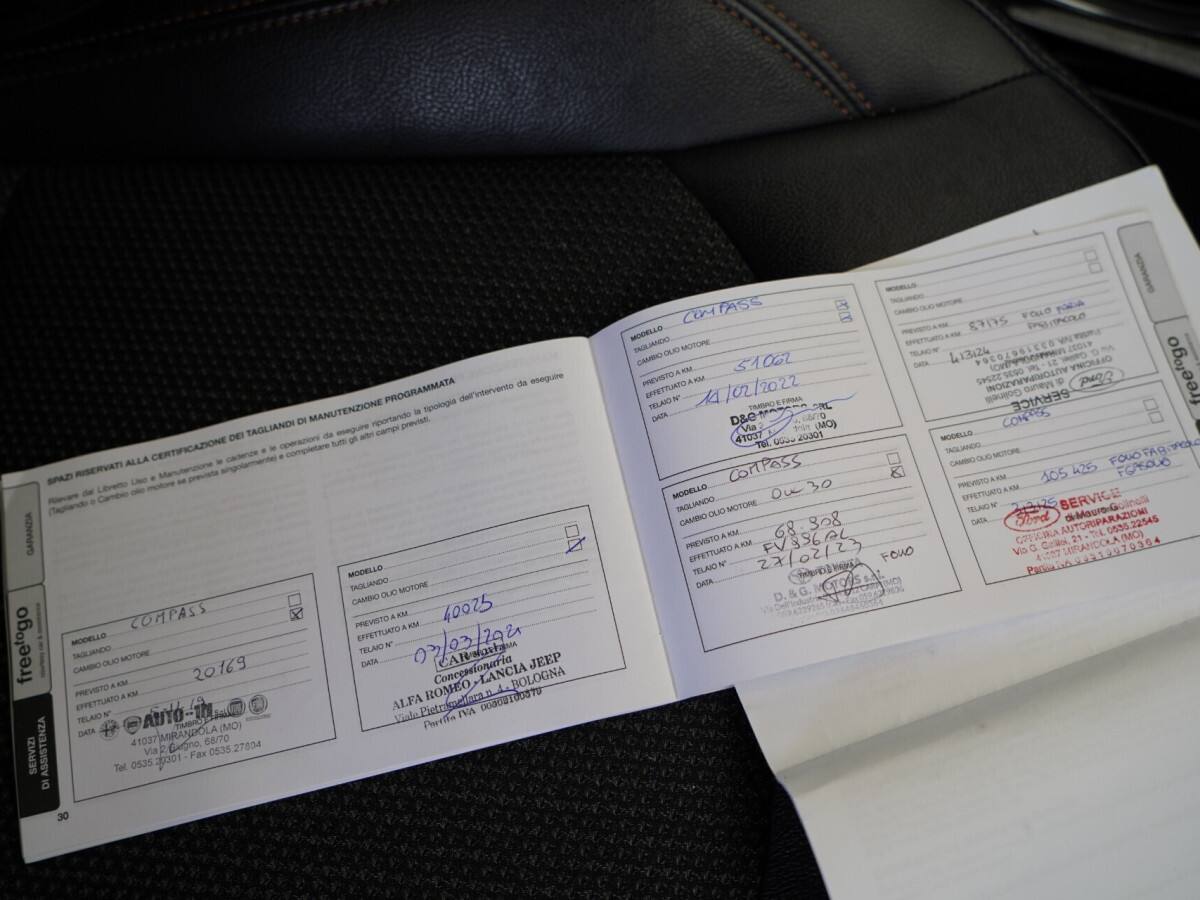 SPAZI RISERVATI ALLA CERTIFICAZIONE DEI TAGLIANDI DI MANUTENZIONE PROGRAMMATA
Rilevare dal Libretto Uso e Manutenzione le cadenze e le operazioni da eseguire riportando la tipologia dell'intervento da eseguire
(Tagliando o Cambio olio motore se prevista singolarmente) e completare tutti gli altri campi previsti.
GARANZIA
freetogo
SERVIZI
DI ASSISTENZA
30
MODELLO COMPASS
TAGLIANDO
CAMBIO OLIO MOTORE
PREVISTO A KM
EFFETTUATO A KM 20169
TELAIO N°
DATA
AUTO-IN
41037 MIRANDOLA (MO)
Via 2 Giugno, 68/70
Tel. 0535.20301 - Fax 0535.27604
MODELLO
TAGLIANDO
CAMBIO OLIO MOTORE
PREVISTO A KM
EFFETTUATO A KM 40025
TELAIO N°
DATA 03/03/2021
Concessionaria
ALFA ROMEO - LANCIA JEEP
Viale Pietramellara n. 4 - BOLOGNA
Partita IVA
MODELLO COMPASS
TAGLIANDO
CAMBIO OLIO MOTORE
PREVISTO A KM
EFFETTUATO A KM 51062
TELAIO N°
DATA 14/02/2022
TIMBRO E FIRMA
D&G MOTORS SRL
Via 68/70
41037 (MO)
Tel. 0535 20301
MODELLO COMPASS
TAGLIANDO
CAMBIO OLIO MOTORE 0W30
PREVISTO A KM
EFFETTUATO A KM 68.308
TELAIO N°
DATA 27/02/23
FOLIO
D. & G. MOTORS s.r.l.
MODELLO
TAGLIANDO
CAMBIO OLIO MOTORE
PREVISTO A KM
EFFETTUATO A KM 87175
TELAIO N°
DATA
Ford SERVICE
di Mauro Golinelli
OFFICINA AUTORIPARAZIONI
Via G. Galilei, 21 - Tel. 0535.22545
41037 MIRANDOLA (MO)
GARANZIA
freetogo
MODELLO COMPASS
TAGLIANDO
CAMBIO OLIO MOTORE
PREVISTO A KM
EFFETTUATO A KM 105425
TELAIO N°
DATA
Ford SERVICE
di Mauro Golinelli
OFFICINA AUTORIPARAZIONI
Via G. Galilei, 21 - Tel. 0535.22545
41037 MIRANDOLA (MO)